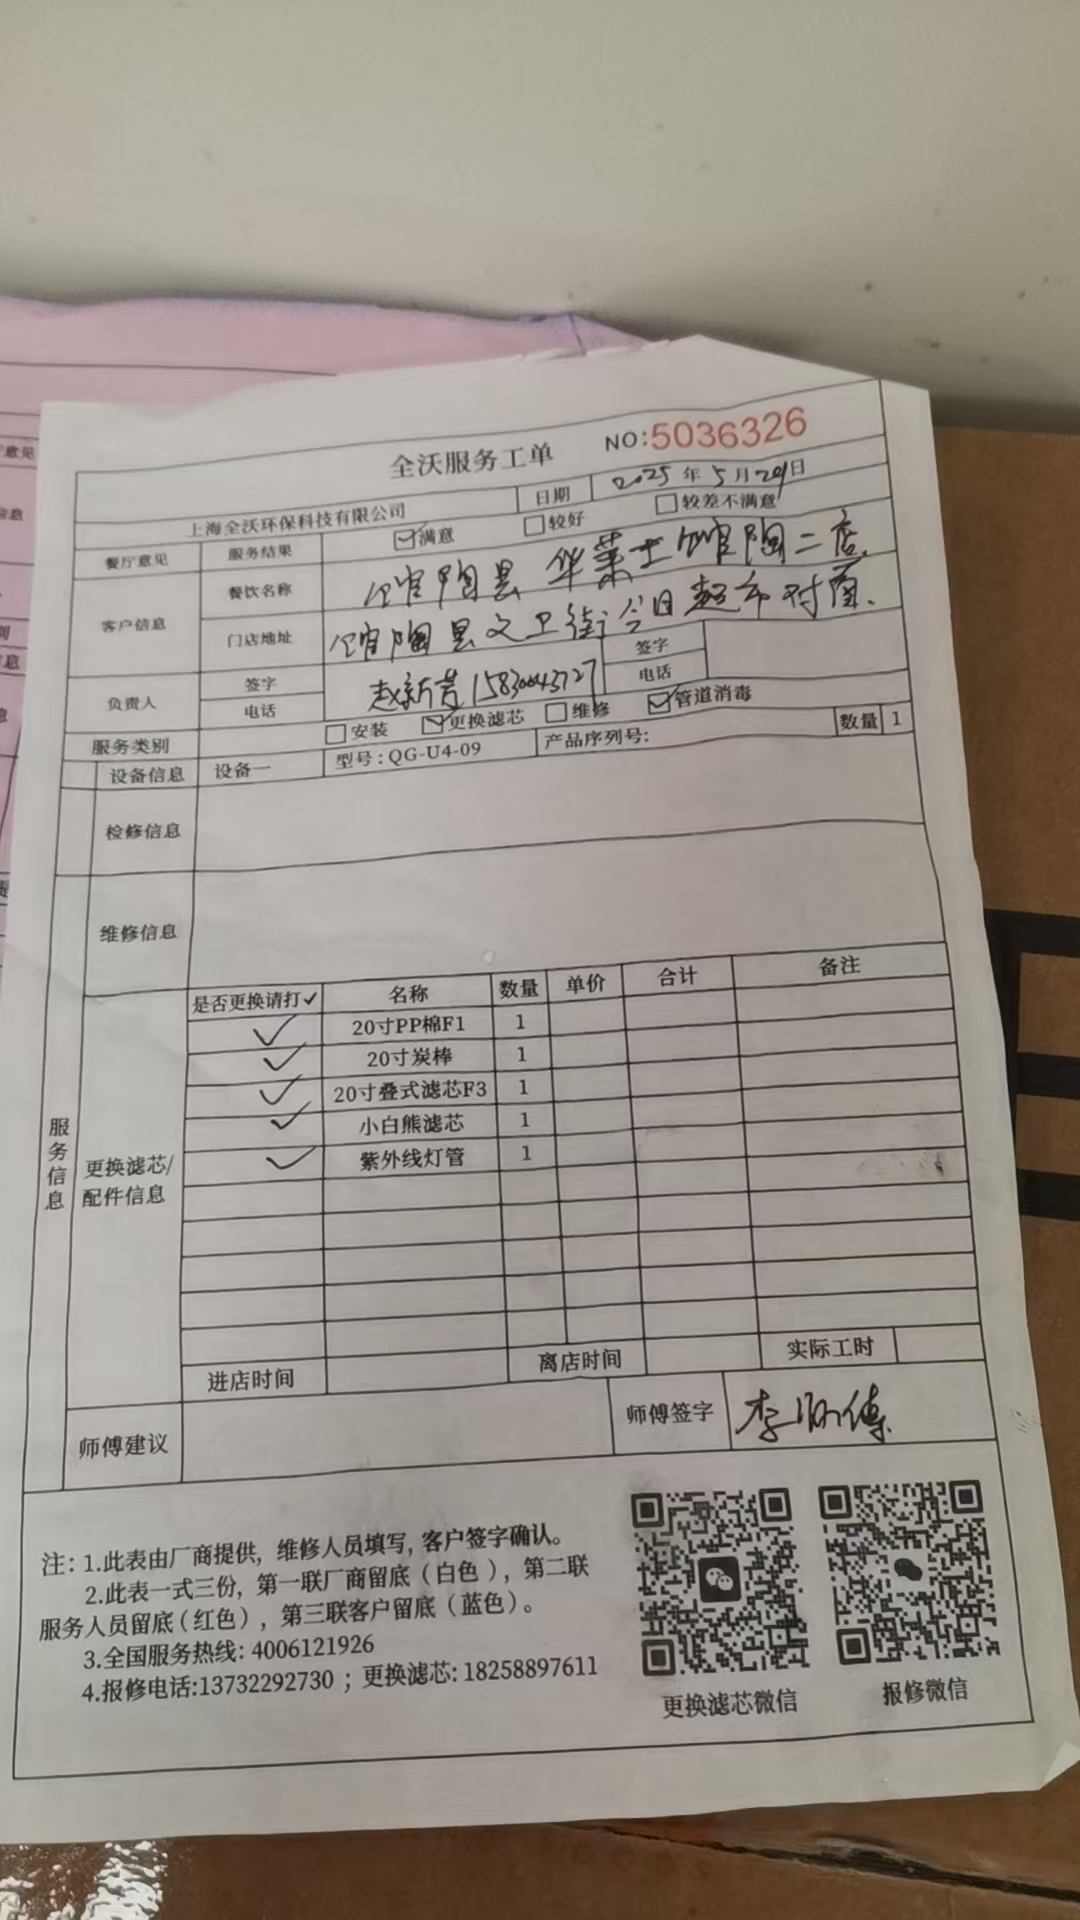 全沃服务工单 NO:5036326
上海全沃环保科技有限公司 日期 2025年5月29日
餐厅意见 服务结果 ☑满意 □较好 □较差不满意
客户信息 餐饮名称 馆陶县 华莱士馆陶二店.
门店地址 馆陶县文卫街今日超市对面.
负责人 签字 赵新 签字
电话 15830043727 电话
服务类别 □安装 ☑更换滤芯 □维修 ☑管道消毒
设备信息 设备一 型号:QG-U4-09 产品序列号: 数量 1
检修信息
维修信息
服务信息
更换滤芯/配件信息
是否更换请打✓ 名称 数量 单价 合计 备注
✓ 20寸PP棉F1 1
✓ 20寸炭棒 1
✓ 20寸叠式滤芯F3 1
✓ 小白熊滤芯 1
✓ 紫外线灯管 1
进店时间 离店时间 实际工时
师傅建议 师傅签字 李师傅
注: 1.此表由厂商提供, 维修人员填写, 客户签字确认。
2.此表一式三份, 第一联厂商留底(白色), 第二联
服务人员留底(红色), 第三联客户留底(蓝色)。
3.全国服务热线: 4006121926
4.报修电话:13732292730 ; 更换滤芯: 18258897611
更换滤芯微信 报修微信